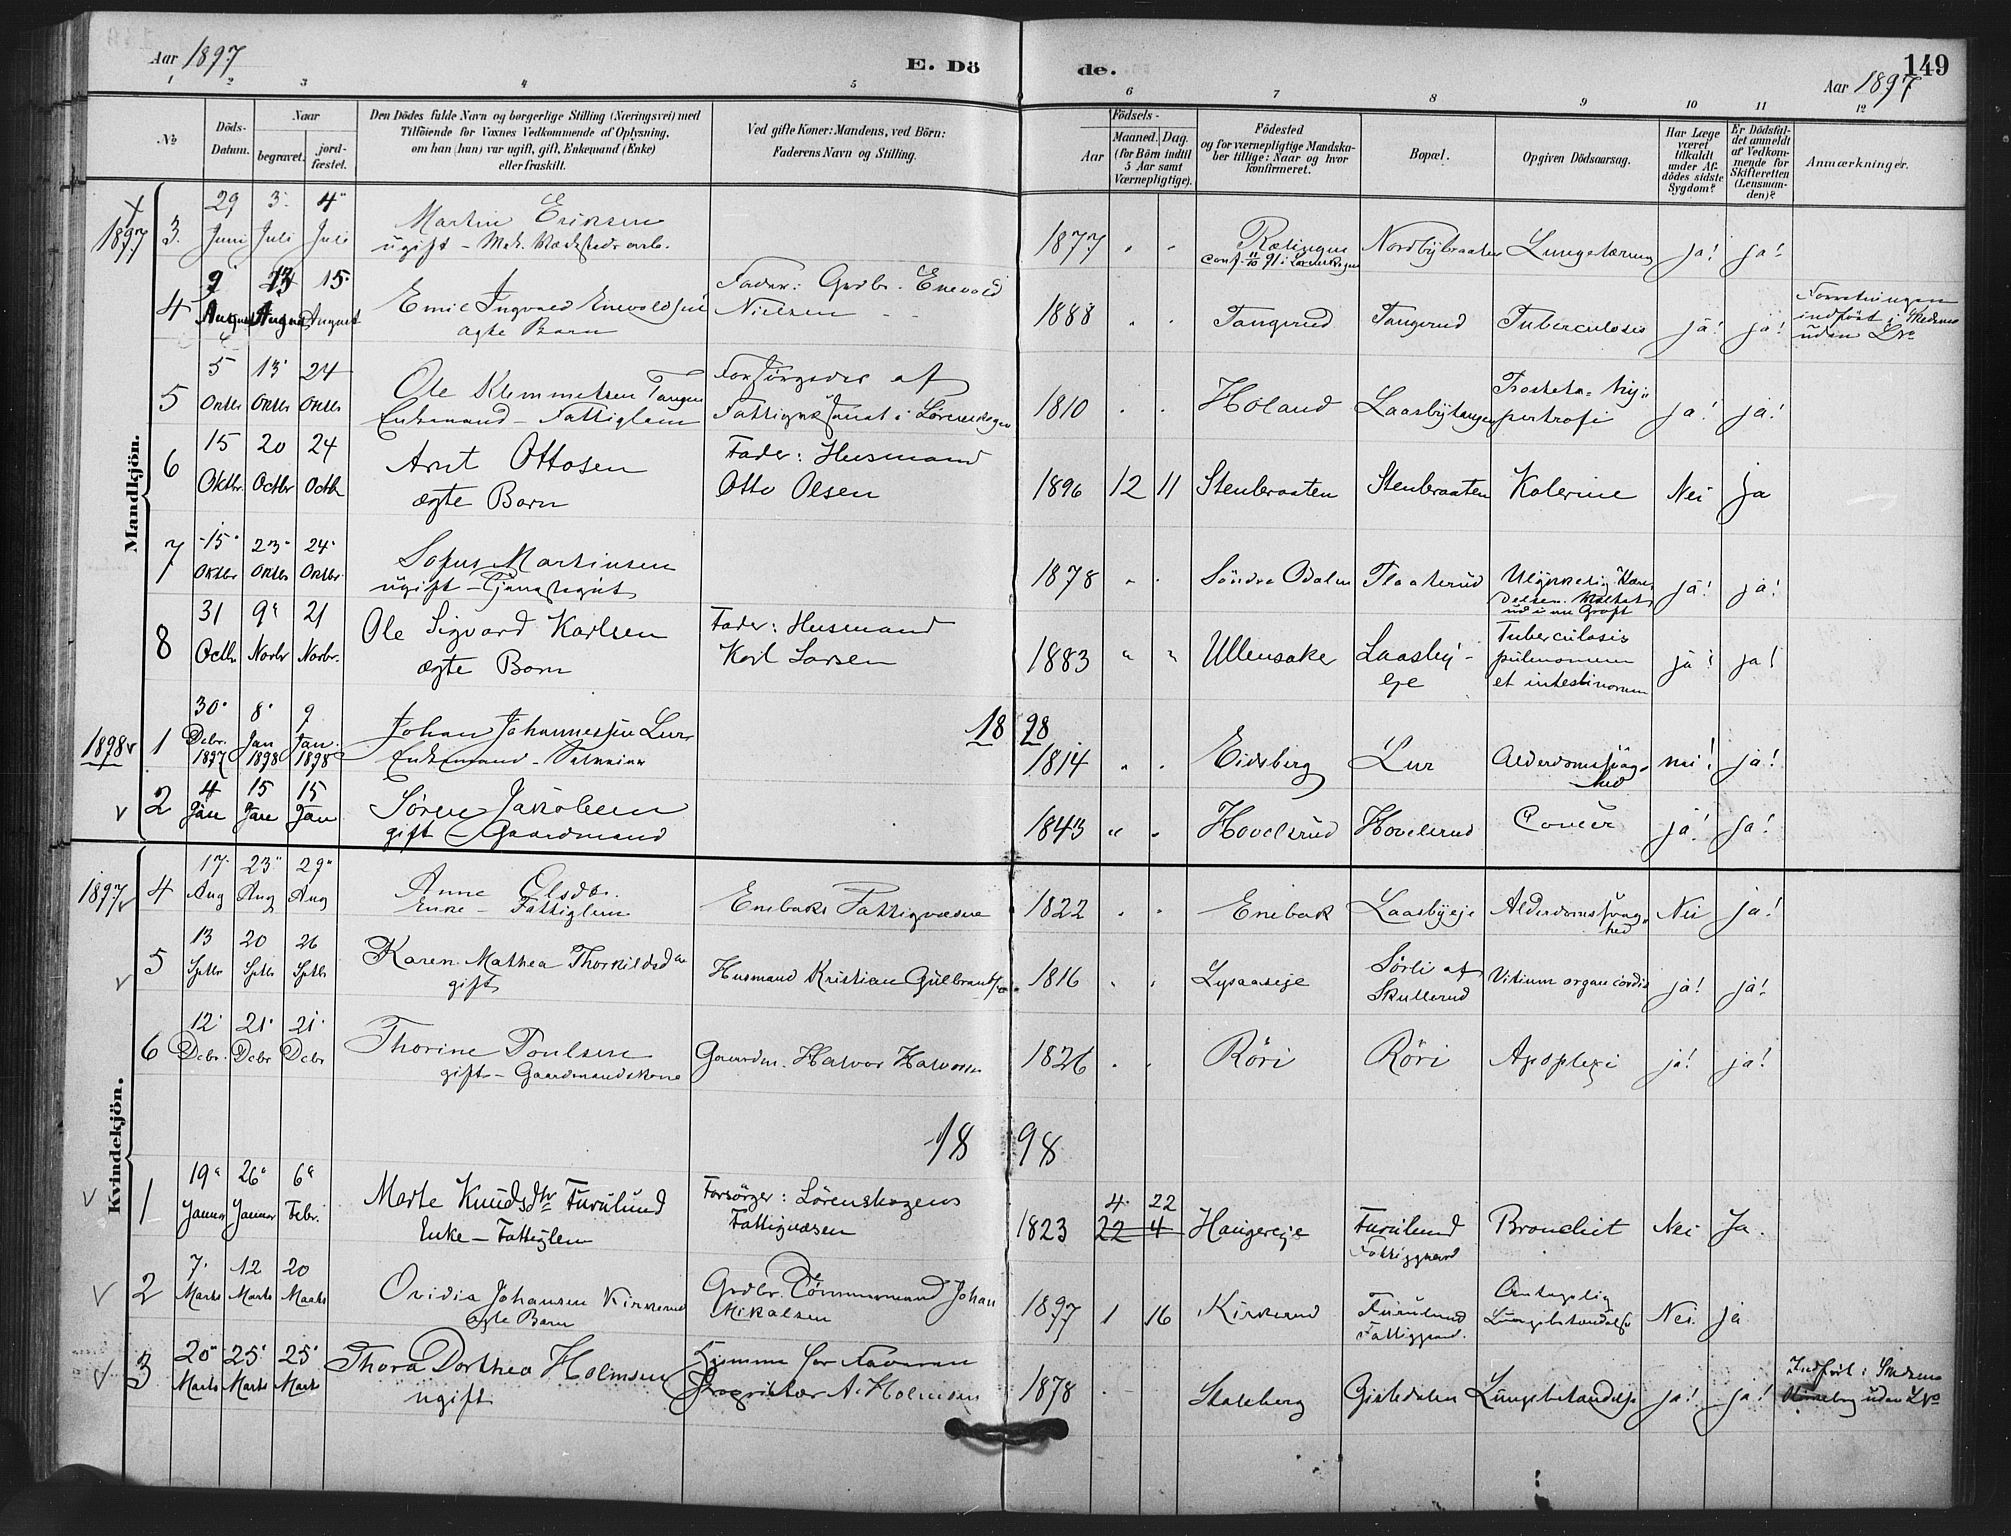 149
Aar 1897
E. Dö
de.
Aar 1897
1 2 3 4 5 6 7 8 9 10 11 12
No
Döds-
Datum.
Naar
begravet.
jord-
fæstet.
Den Dödes fulde Navn og borgerlige Stilling (Næringsvei) med
Tilföiende for Voxnes Vedkommende af Oplysning,
om han (hun) var ugift, gift, Enkemand (Enke)
eller fraskilt.
Ved gifte Koner: Mandens, ved Börn:
Faderens Navn og Stilling.
Födsels-
Aar
Maaned. Dag.
(for Börn indtil
5 Aar samt
Værnepligtige).
Födested
og for værnepligtige Mandska-
ber tillige: Naar og hvor
konfirmeret.
Bopæl.
Opgiven Dödsaarsag.
Har Læge
været
tilkaldt
under Af-
dödes sidste
Sygdom?
Er Dödsfal-
det anmeldt
af Vedkom-
mende for
Skifteretten
(Lensman-
den)?
Anmærkninger.
Mandkjön.
1897 3. 29 Juni 3. Juli 4 Juli
Martin Eriksen
ugift –
1877 " " Rælingen Nordbybraaten Lungetæring ja! ja!
4 9 August 13 August 15 August
Emil Ingvald Enevoldsen
ægte Barn
Fader: Grdbr. Enevold
Nielsen
1888 " " Tangerud Tangerud Tuberculosis ja! ja!
indført i Skedsmo
uden No
5 5 Oktbr 13 Oktbr 24 Oktbr
Ole Klemmetsen Tangen
Enkemand – Fattiglem
Forsörges af
Fattigvæsenet i Lörenskogen
1810 " " Höland Laasbytangen Prostata-hy-
pertrofi ja! ja!
6 15 Oktbr. 20 Octbr 24 Octb
Arnt Ottosen
ægte Barn
Fader: Husmand
Otto Olsen
1896 12 11 Stenbraaten Stenbraaten Kolerine Nei Ja
7 15 Oktbr 23 Oktbr 24 Oktbr
Sofus Martinsen
ugift – Tjenestegut
1878 " " Söndre Odalen Flaaterud ja! ja!
8 31 Octbr 9 Novbr 21 Novbr.
Ole Sigvard Karlsen
ægte Barn
Fader: Husmand
Karl Larsen
1883 " " Ullensaker Laasby-
eje
Tuberculosis
pulmonum
et intestinorum ja! ja!
18 98
1898 1 30 Dcbr. 1897 8 Jan 1898 9 Jan. 1898
Johan Johannessen Lur
Enkemand –
1814 " " Eidsberg Lur Alderdomssvag-
hed nei! ja!
2 4 Jan 15 Jan 15 Jan
Sören Jakobsen
gift – Gaardmand
1843 " " Hovelsrud Hovelsrud Cancer ja! ja!
Kvindekjön.
1897 4 17 Aug 23 Aug 29 Aug
Anne Olsdtr.
Enke – Fattiglem
Enebaks Fattigvæsen
1822 " " Enebak Laasbyeje Alderdomssvag-
hed Nei ja!
5 13 Sptbr 20 Sptbr 26 Sptbr
Karen Mathea Thorkildsdtr
gift
Husmand Kristian Gulbrandsen
1816 " " Lysaaseje Sörli af
Skullerud Vitium organ cordis ja! ja!
6 12 Dcbr. 21 Dcbr 21 Dcbr
Thorine Poulsen
gift – Gaardmandskone
Gaardm. Halvor Halvorsen
1826 " " Röri Röri Apoplexi ja! ja!
18 98
1 19 Januar 26 Januar 6 Febr.
Marte Knudsdtr Furulund
Enke – Fattiglem
Forsörger: Lörenskogens
Fattigvæsen
1823 4 22
22 4
Haugereje Furulund
Fattiggaard Bronchit Nei Ja.
2 7 Marts 12 Marts 20 Marts
Ovidia Johansen Kirkerud
ægte Barn
Grdbr. Tömmermand Johan
Mikalsen
1897 1 16 Kirkerud Furulund
Fattiggaard. Antagelig
Lungebetændelse Nei ja
3 20 Marts 25 Marts 25 Mart
Thora Dorthea Holmsen
ugift
Hjemme hos Faderen
Proprietær A. Holmsen
1878 " Stalsberg Gjeledalen Lungebetændelse ja! ja!
Indfört i Skedsmo
uden No